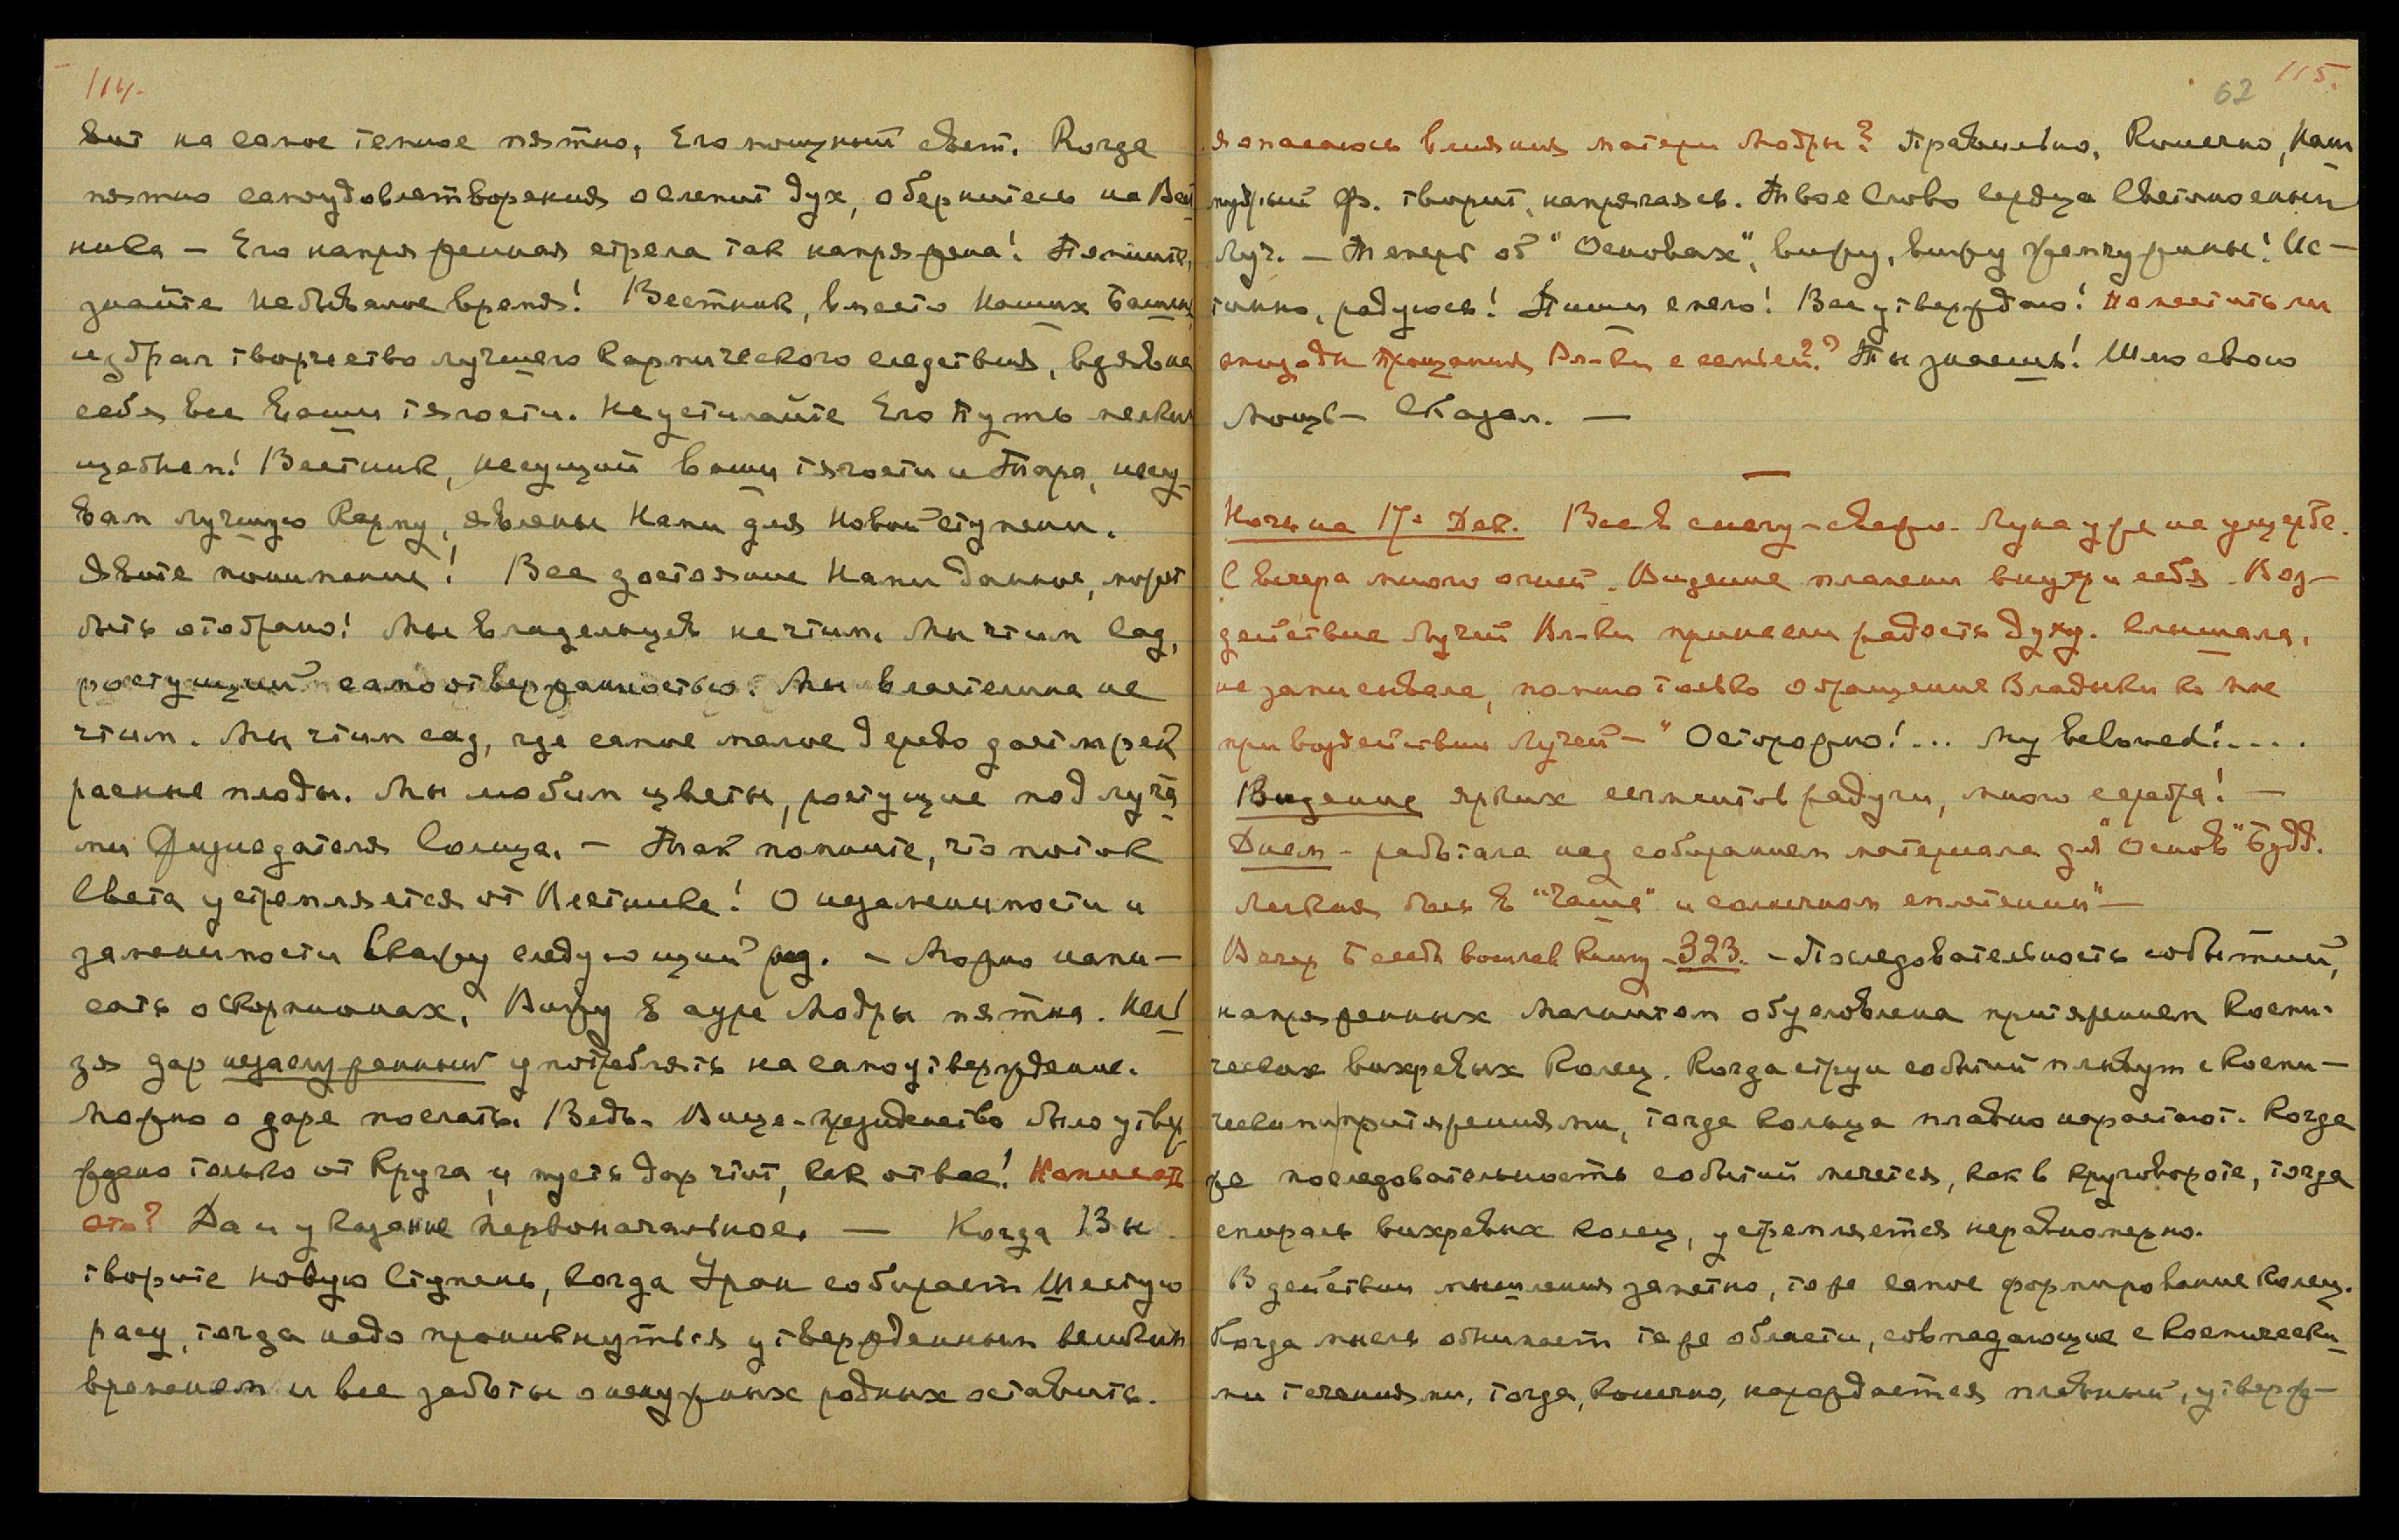 114.
вит на самое темное пятно, Его мощный свет. Когда
пятно самоудовлетворения ослепит дух, обернитесь на Вест
ника – Его напряженная стрела так напряжена! Помните,
знайте небывалое время! Вестник, вместо Наших Башен,
избрал творчество лучшего кармического следствия, взяв на
себя все ваши тягости. Не устилайте Его Путь мелким
щебнем! Вестник, несущий ваши тягости и Тара, несу-
вам лучшую Карму, явлены Нами для новой ступени.
Явите понимание! Все достояние Нами данное, может
быть отобрано! Мы владельцев не чтим. Мы чтим сад,
ростущий самоотверженностью. Мы властелина не
чтим. Мы чтим сад, где самое малое дерево дает прек
расные плоды. Мы любим цветы, ростущие под луча
ми Жизнедателя Солнца. – Так помните, что поток
Света устремляется от Вестника! О незаменимости и
заменимости Скажу следующий раз. – Можно напи-
сать о скорпионах. Вижу в ауре Модры пятна. Нель
зя дар незаслуженный употреблять на самоутверждение.
Можно о даре послать. Ведь. Вице-президенство было утвер
ждено только от Круга, и пусть дар чтит, как от вас! Написать
это? Да и указание первоначальное. — Когда Вы
творите новую Ступень, когда Уран собирает Шестую
расу, тогда надо проникнуться утвержденным великим
временем и все заботы о ненужных родных оставить.
62 115.
Я опасаюсь влияния матери Модры? Правильно, Конечно, Наш
мудрый Ф. творит, напрягаясь. Твое Слово сердца Светоносный
Луч. – Теперь об "Основах", вижу, вижу жемчужины! Ис-
тинно, радуюсь! Пиши смело! Все утверждаю! Поместить ли
эпизоды прощания Вл-ки с семьей? Ты знаешь! Шлю свою
Мощь – Сказал. —
Ночь на 17е Дек. Вся в снегу – свежо. Луна уже на ущербе.
С вечера много огней. Видение пламени внутри себя. Воз-
действие Лучей Вл-ки принесли радость духу. Слышала,
не записывала, помню только обращение Владыки ко мне
при воздействии Лучей – "Осторожно!... My beloved!....
Видение ярких сегментов радуги, много серебра! –
Днем – работала над собиранием материала для "Основ" Будд.
Легкая боль в "Чаше" и солнечном сплетении" –
Вечер Бесед вошлев книгу – 323. – Последовательность событий,
напряженных Магнитом обусловлена притяжением Косми-
ческих вихревых Колец. Когда струи событий плывут с Косми-
ческими притяжениями, тогда кольца плавно нарастают. Когда
же последовательность событий мечется, как в круговороте, тогда
спираль вихревых колец, устремляется неравномерно.
В действии мышления заметно, то же самое формирование Колец.
Когда мысль обнимает те же области, совпадающие с Космически
ми течениями, тогда, конечно, нарождается плавный, утверж-